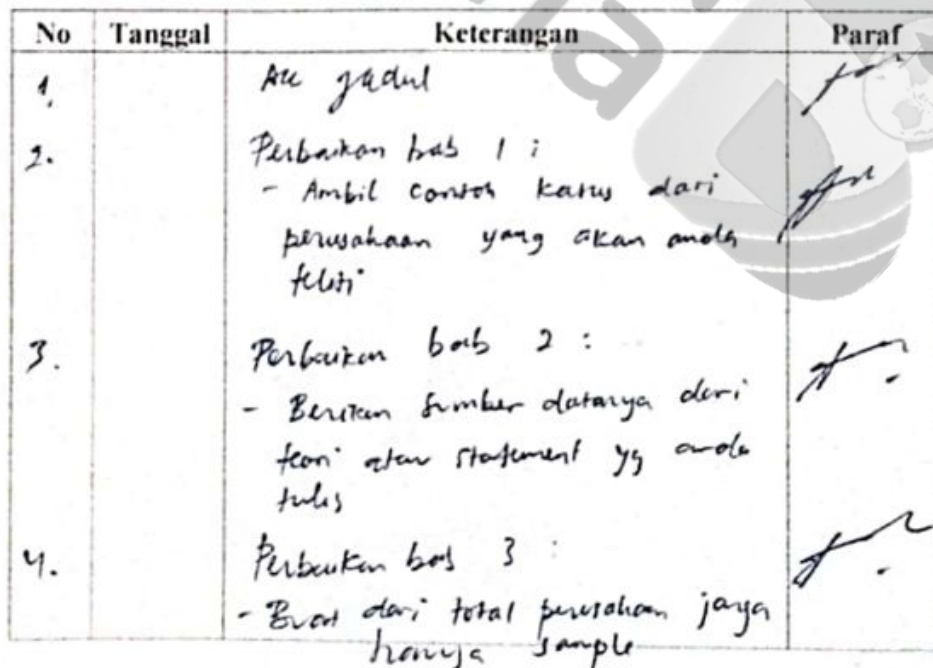 No Tanggal Keterangan Paraf
1. Acc judul
2. Perbaikan bab 1 :
- Ambil contoh kasus dari
perusahaan yang akan anda
teliti
3. Perbaikan bab 2 :
- Berikan sumber datanya dari
teori atau statement yg anda
tulis
4. Perbaikan bab 3 :
- Buat dari total perusahaan
hanya sample